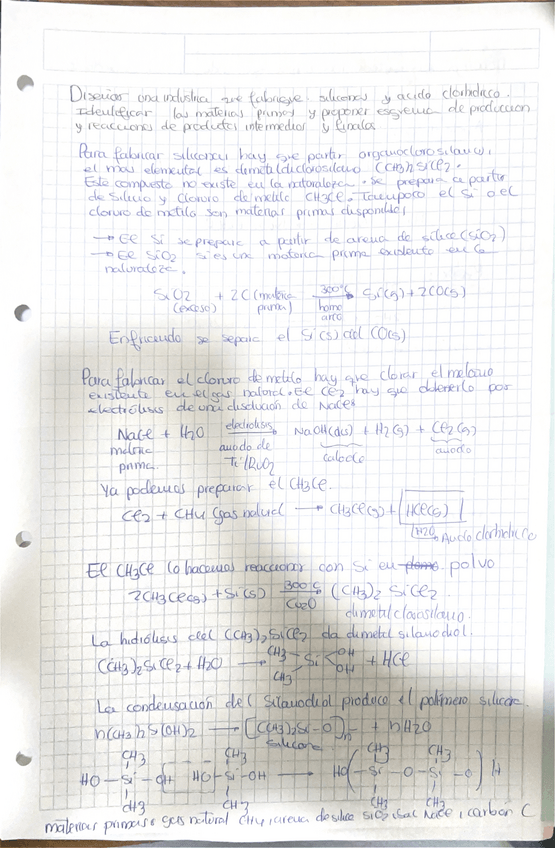 Diseñar una industria que fabrique siliconas y ácido clorhídrico.
Identificar las materias primas y proponer esquema de producción
y reacciones de productos intermedios y finales
Para fabricar siliconas hay que partir organoclorosilanos,
el más elemental es dimetildiclorosilano (CH3)2SiCl2.
Este compuesto no existe en la naturaleza. Se prepara a partir
de silicio y cloruro de metilo CH3Cl. Tampoco el Si o el
cloruro de metilo son materias primas disponibles
→ El Si se prepara a partir de arena de sílice (SiO2)
→ El SiO2 si es una materia prima existente en la
naturaleza.
SiO2 + 2C (materia prima) 300°C → Si(g) + 2CO(g)
(exceso) horno arco
Enfriando se separa el Si(s) del CO(s)
Para fabricar el cloruro de metilo hay que clorar el metano
existente en el gas natural. El Cl2 hay que obtenerlo por
electrólisis de una disolución de NaCl
NaCl + H2O electrolisis → NaOH(dis) + H2(g) + Cl2(g)
materia prima ánodo de Ti/RuO2 cátodo ánodo
Ya podemos preparar el CH3Cl.
Cl2 + CH4 (gas natural → CH3Cl(g) + HCl(g)
H2O → Ácido clorhídrico
El CH3Cl lo hacemos reaccionar con Si en polvo
2CH3Cl(g) + Si(s) 300°C → (CH3)2 SiCl2
Cu2O dimetilclorosilano.
La hidrólisis del (CH3)2SiCl2 da dimetilsilanodiol.
(CH3)2SiCl2 + H2O → CH3 CH3 Si OH OH + HCl
La condensación del silanodiol produce el polímero silicona
n(CH3)2Si(OH)2 → [(CH3)2Si-O]n + nH2O
silicona
CH3 CH3 CH3 CH3
HO-Si-OH HO-Si-OH → HO(-Si-O-Si-O) H
CH3 CH3 CH3 CH3
materias primas: gas natural CH4, arena de sílice SiO2, sal NaCl, carbón C